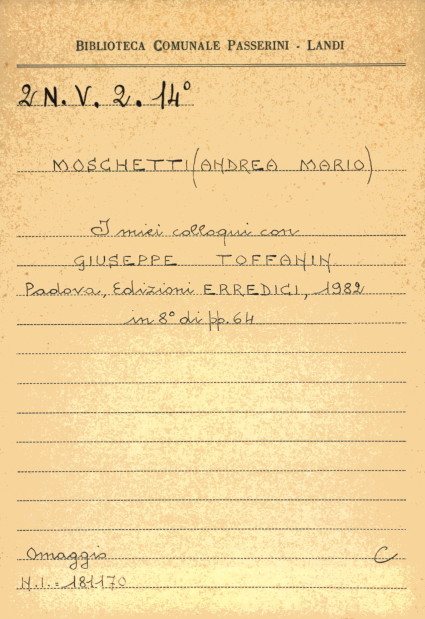 BIBLIOTECA COMUNALE PASSERINI - LANDI
2 N. V. 2. 14°
MOSCHETTI (ANDREA MARIO)
I miei colloqui con
GIUSEPPE TOFFANIN
Padova, Edizioni ERREDICI, 1982
in 8° di pp. 64
Omaggio C
N.I. = 181170